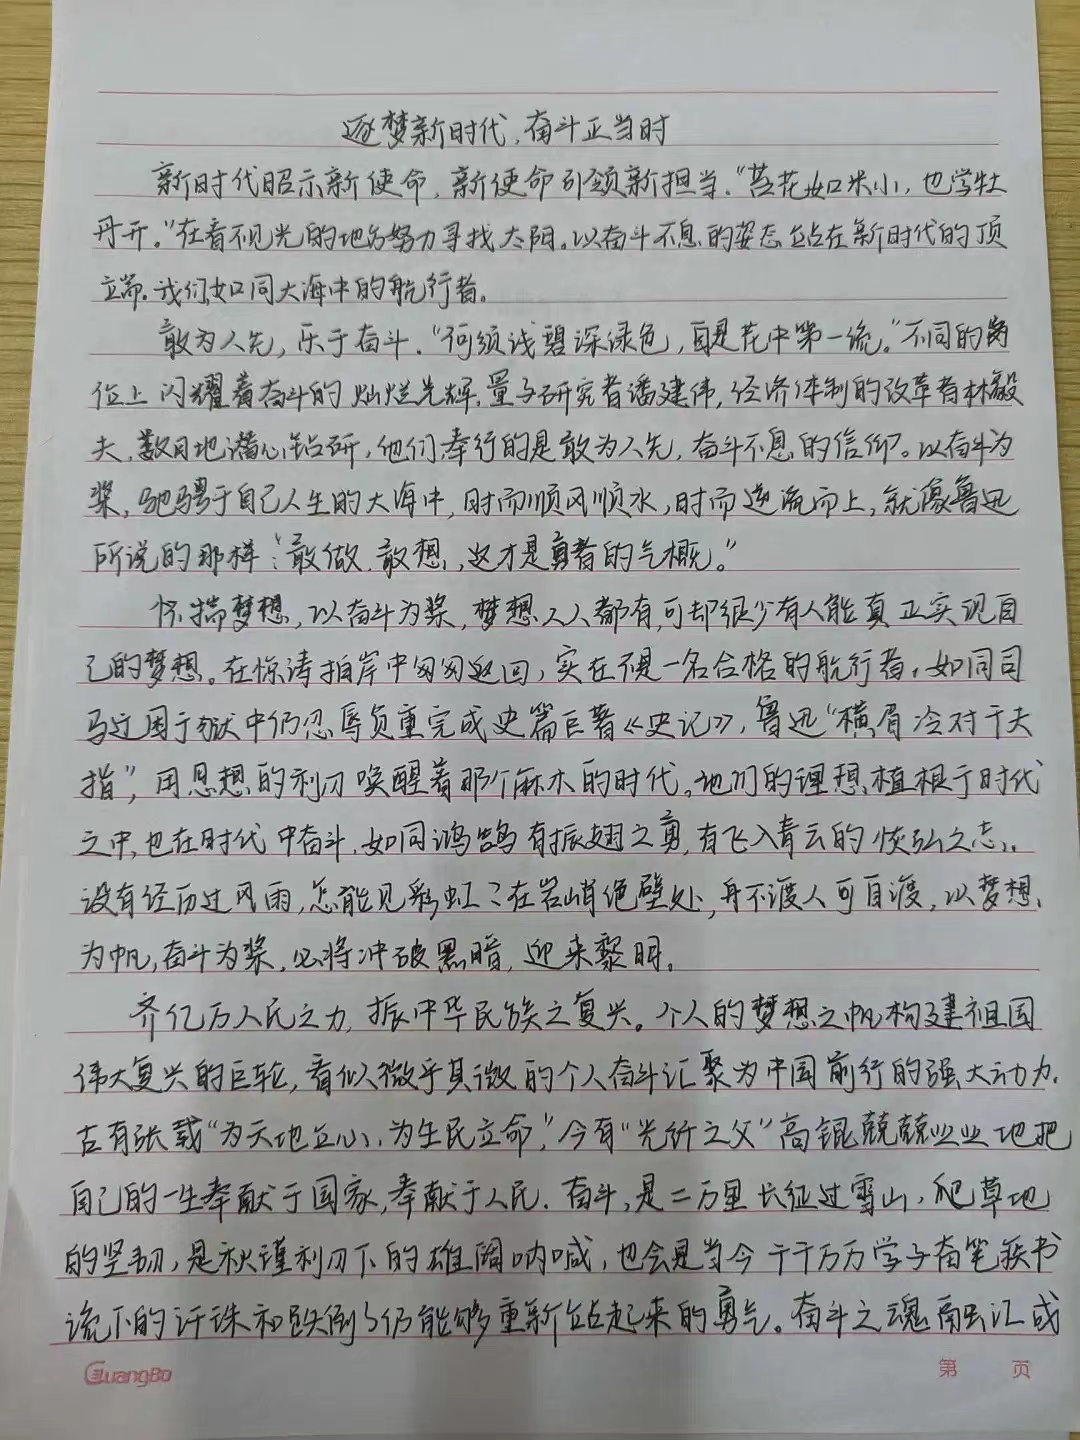 逐梦新时代，奋斗正当时
新时代昭示新使命，新使命引领新担当。“苔花如米小，也学牡
丹开。”在看不见光的地方努力寻找太阳。以奋斗不息的姿态站在新时代的顶
端，我们如同大海中的航行者。
敢为人先，乐于奋斗。“何须浅碧深绿色，自是花中第一流。”不同的岗
位上闪耀着奋斗的灿烂光辉，量子研究者潘建伟，经济体制的改革者林毅
夫，数日地潜心钻研，他们奉行的是敢为人先，奋斗不息的信仰。以奋斗为
桨，驰骋于自己人生的大海中，时而顺风顺水，时而逆流而上，就像鲁迅
所说的那样：“敢做，敢想，这才是勇者的气概。”
怀揣梦想，以奋斗为桨，梦想人人都有，可却很少有人能真正实现自
己的梦想。在惊涛拍岸中匆匆返回，实在不是一名合格的航行者，如同司
马迁困于狱中仍忍辱负重完成史篇巨著《史记》，鲁迅“横眉冷对千夫
指”，用思想的利刃唤醒着那个麻木的时代。他们的理想植根于时代
之中，也在时代中奋斗，如同鸿鹄有振翅之勇，有飞入青云的恢弘之志。
没有经历过风雨，怎能见彩虹？在岩峭绝壁处，舟不渡人可自渡，以梦想
为帆，奋斗为桨，必将冲破黑暗，迎来黎明。
齐亿万人民之力，振中华民族之复兴。个人的梦想之帆构建祖国
伟大复兴的巨轮，看似微乎其微的个人奋斗汇聚为中国前行的强大动力。
古有张载“为天地立心，为生民立命”，今有“光纤之父”高锟兢兢业业地把
自己的一生奉献于国家，奉献于人民。奋斗，是二万里长征过雪山，爬草地
的坚韧，是秋瑾利刃下的雄阔呐喊，也会是当今千千万万学子奋笔疾书
流下的汗珠和跌倒了仍能够重新站起来的勇气。奋斗之魂融汇成
GuangBo
第 页